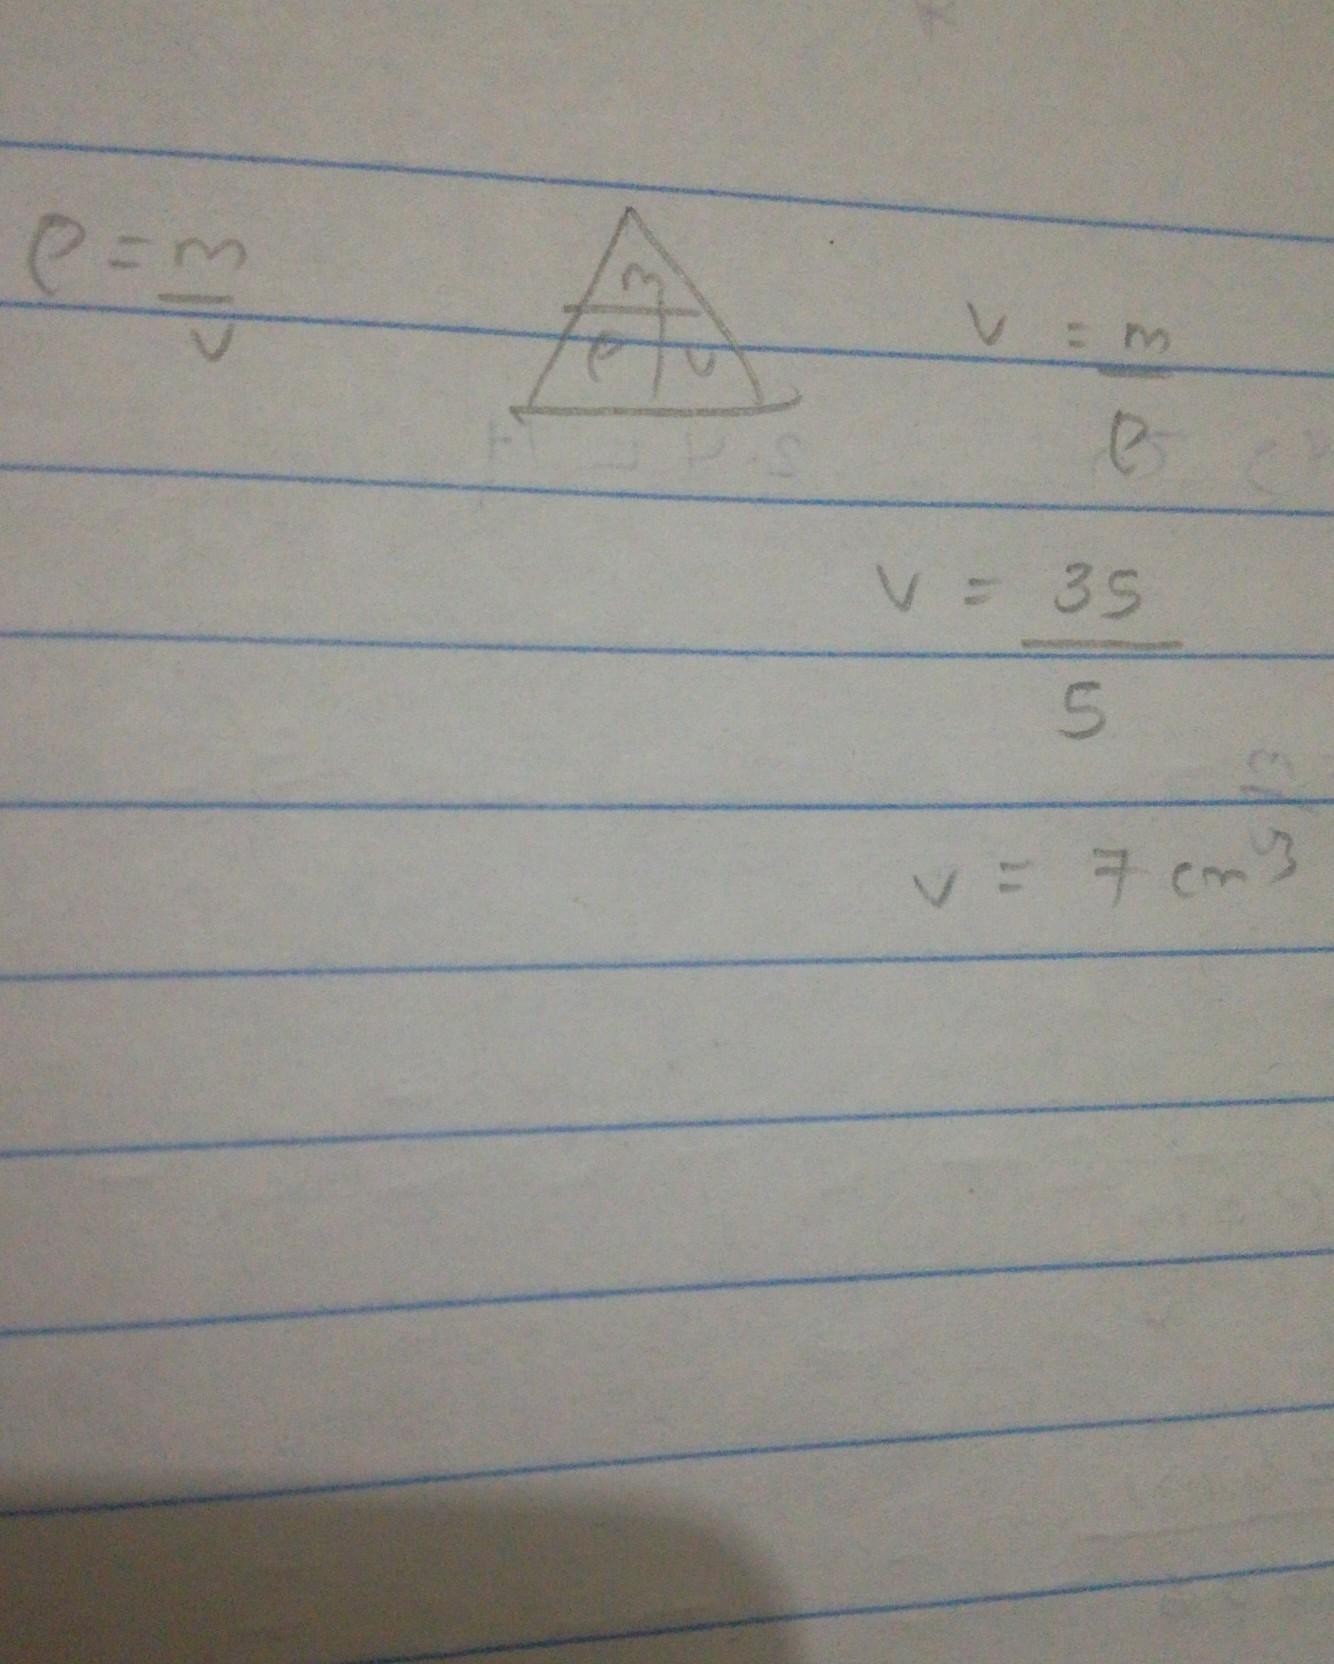 ρ = m/v
m
ρ v
v = m/ρ
v = 35/5
v = 7 cm³